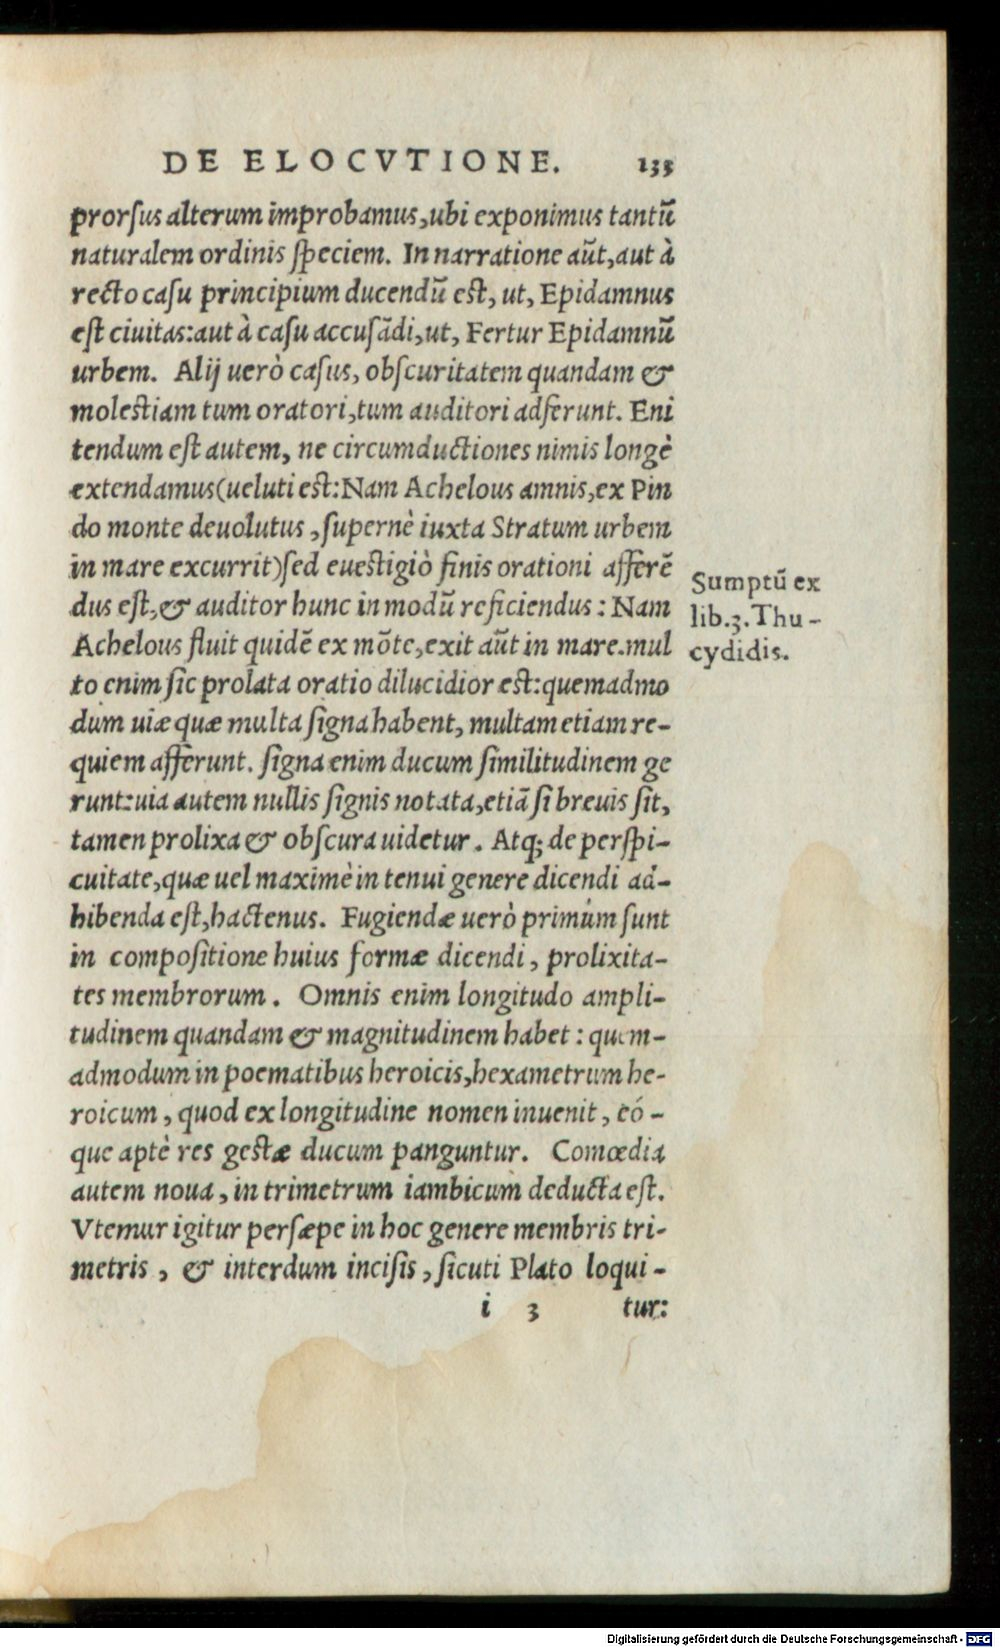 DE ELOCVTIONE. 133
prorsus alterum improbamus, ubi exponimus tantũ
naturalem ordinis speciem. In narratione aũt, aut à
recto casu principium ducendũ est, ut, Epidamnus
est ciuitas: aut à casu accusãdi, ut, Fertur Epidamnũ
urbem. Alij uerò casus, obscuritatem quandam &
molestiam tum oratori, tum auditori adferunt. Eni
tendum est autem, ne circumductiones nimis longè
extendamus (ueluti est: Nam Achelous amnis, ex Pin
do monte deuolutus, supernè iuxta Stratum urbem
in mare excurrit) sed euestigiò finis orationi afferẽ
dus est, & auditor hunc in modũ reficiendus: Nam
Achelous fluit quidẽ ex mõte, exit aũt in mare. mul
to enim sic prolata oratio dilucidior est: quemadmo
dum uiæ quæ multa signa habent, multam etiam re-
quiem afferunt. signa enim ducum similitudinem ge
runt: uia autem nullis signis notata, etiã si breuis sit,
tamen prolixa & obscura uidetur. Atq; de perspi-
cuitate, quæ uel maximè in tenui genere dicendi ad-
hibenda est, hactenus. Fugiendæ uerò primùm sunt
in compositione huius formæ dicendi, prolixita-
tes membrorum. Omnis enim longitudo ampli-
tudinem quandam & magnitudinem habet: quem-
admodum in poematibus heroicis, hexametrum he-
roicum, quod ex longitudine nomen inuenit, eó-
que aptè res gestæ ducum panguntur. Comœdia
autem noua, in trimetrum iambicum deducta est.
Vtemur igitur persæpe in hoc genere membris tri-
metris, & interdum incisis, sicuti Plato loqui-
i 3 tur:
Sumptũ ex
lib. 3. Thu-
cydidis.
Digitalisierung gefördert durch die Deutsche Forschungsgemeinschaft - DFG